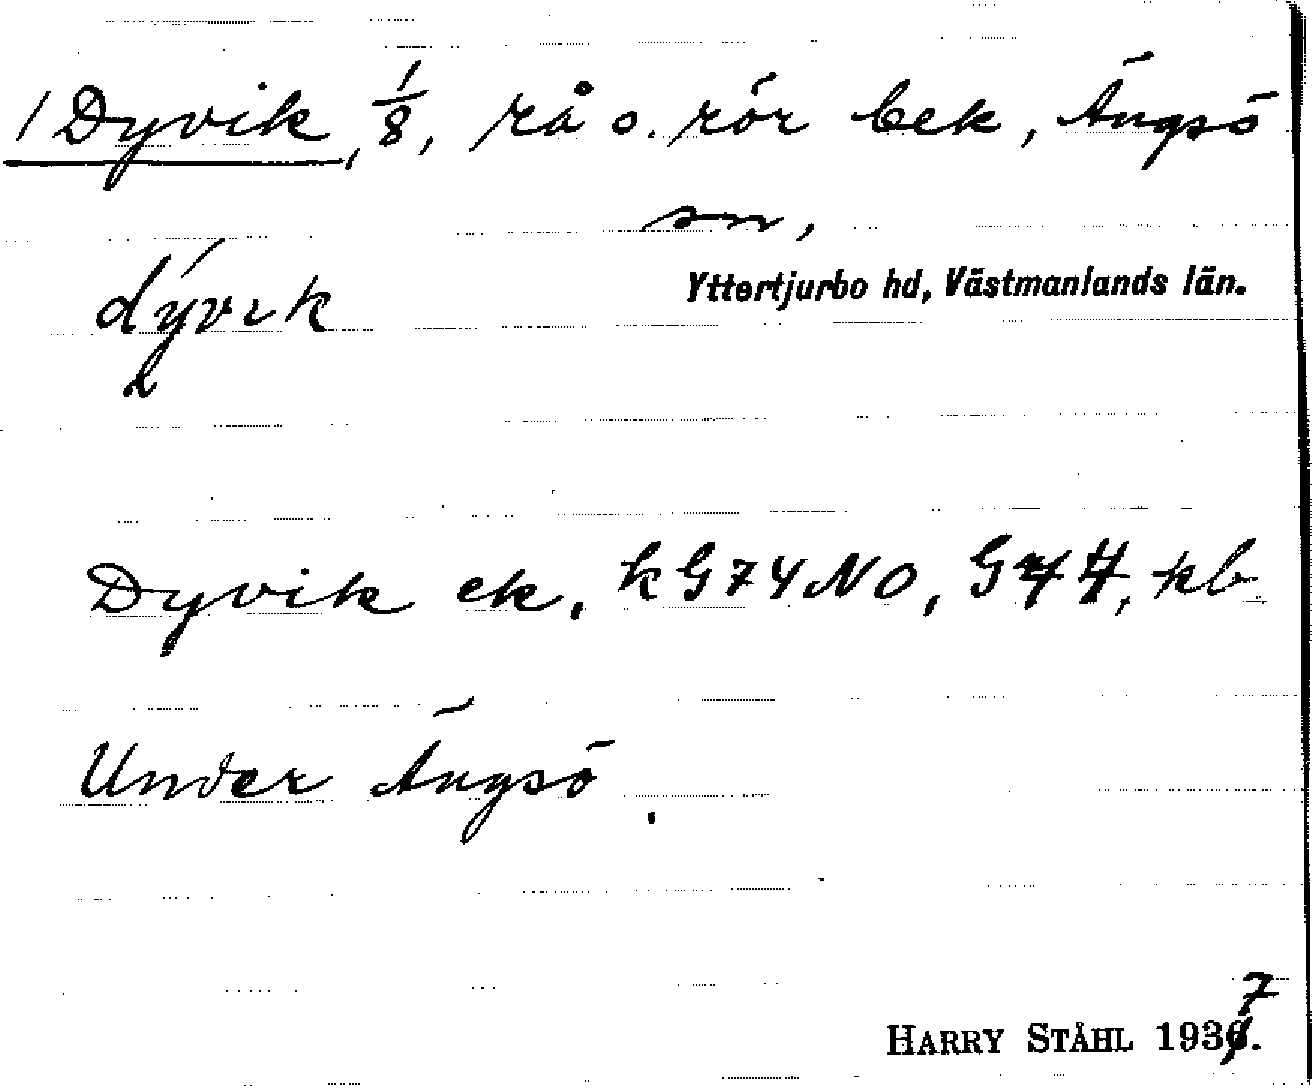 1 Dyvik, 1/8, rå o. rör bek, Ängsö
sn,
Yttertjurbo hd, Västmanlands län.
dývik
Dyvik ek, k G74NO, G74, kb
Under Ängsö.
HARRY STÅHL 1937.